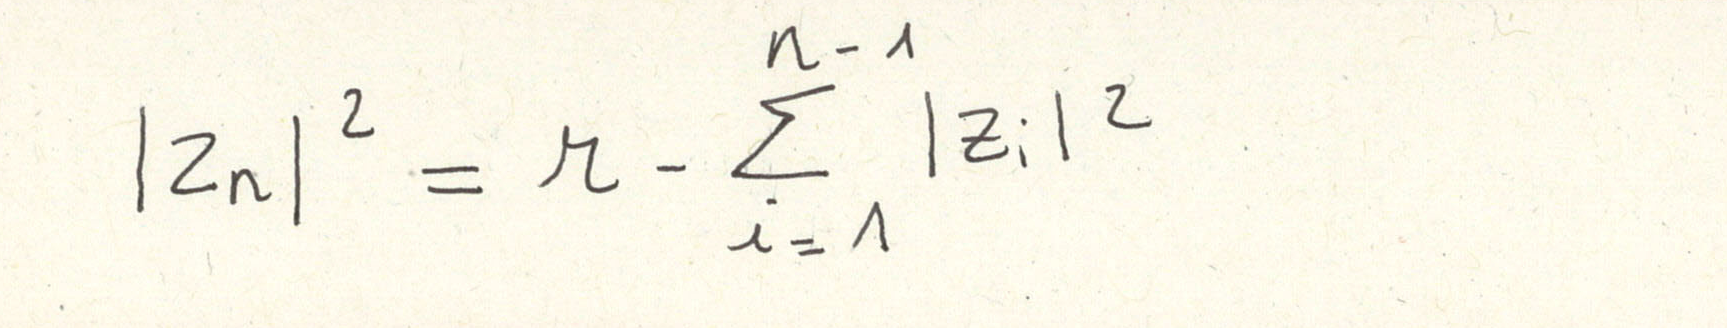 |z_n|^2 = r - \sum_{i=1}^{n-1} |z_i|^2